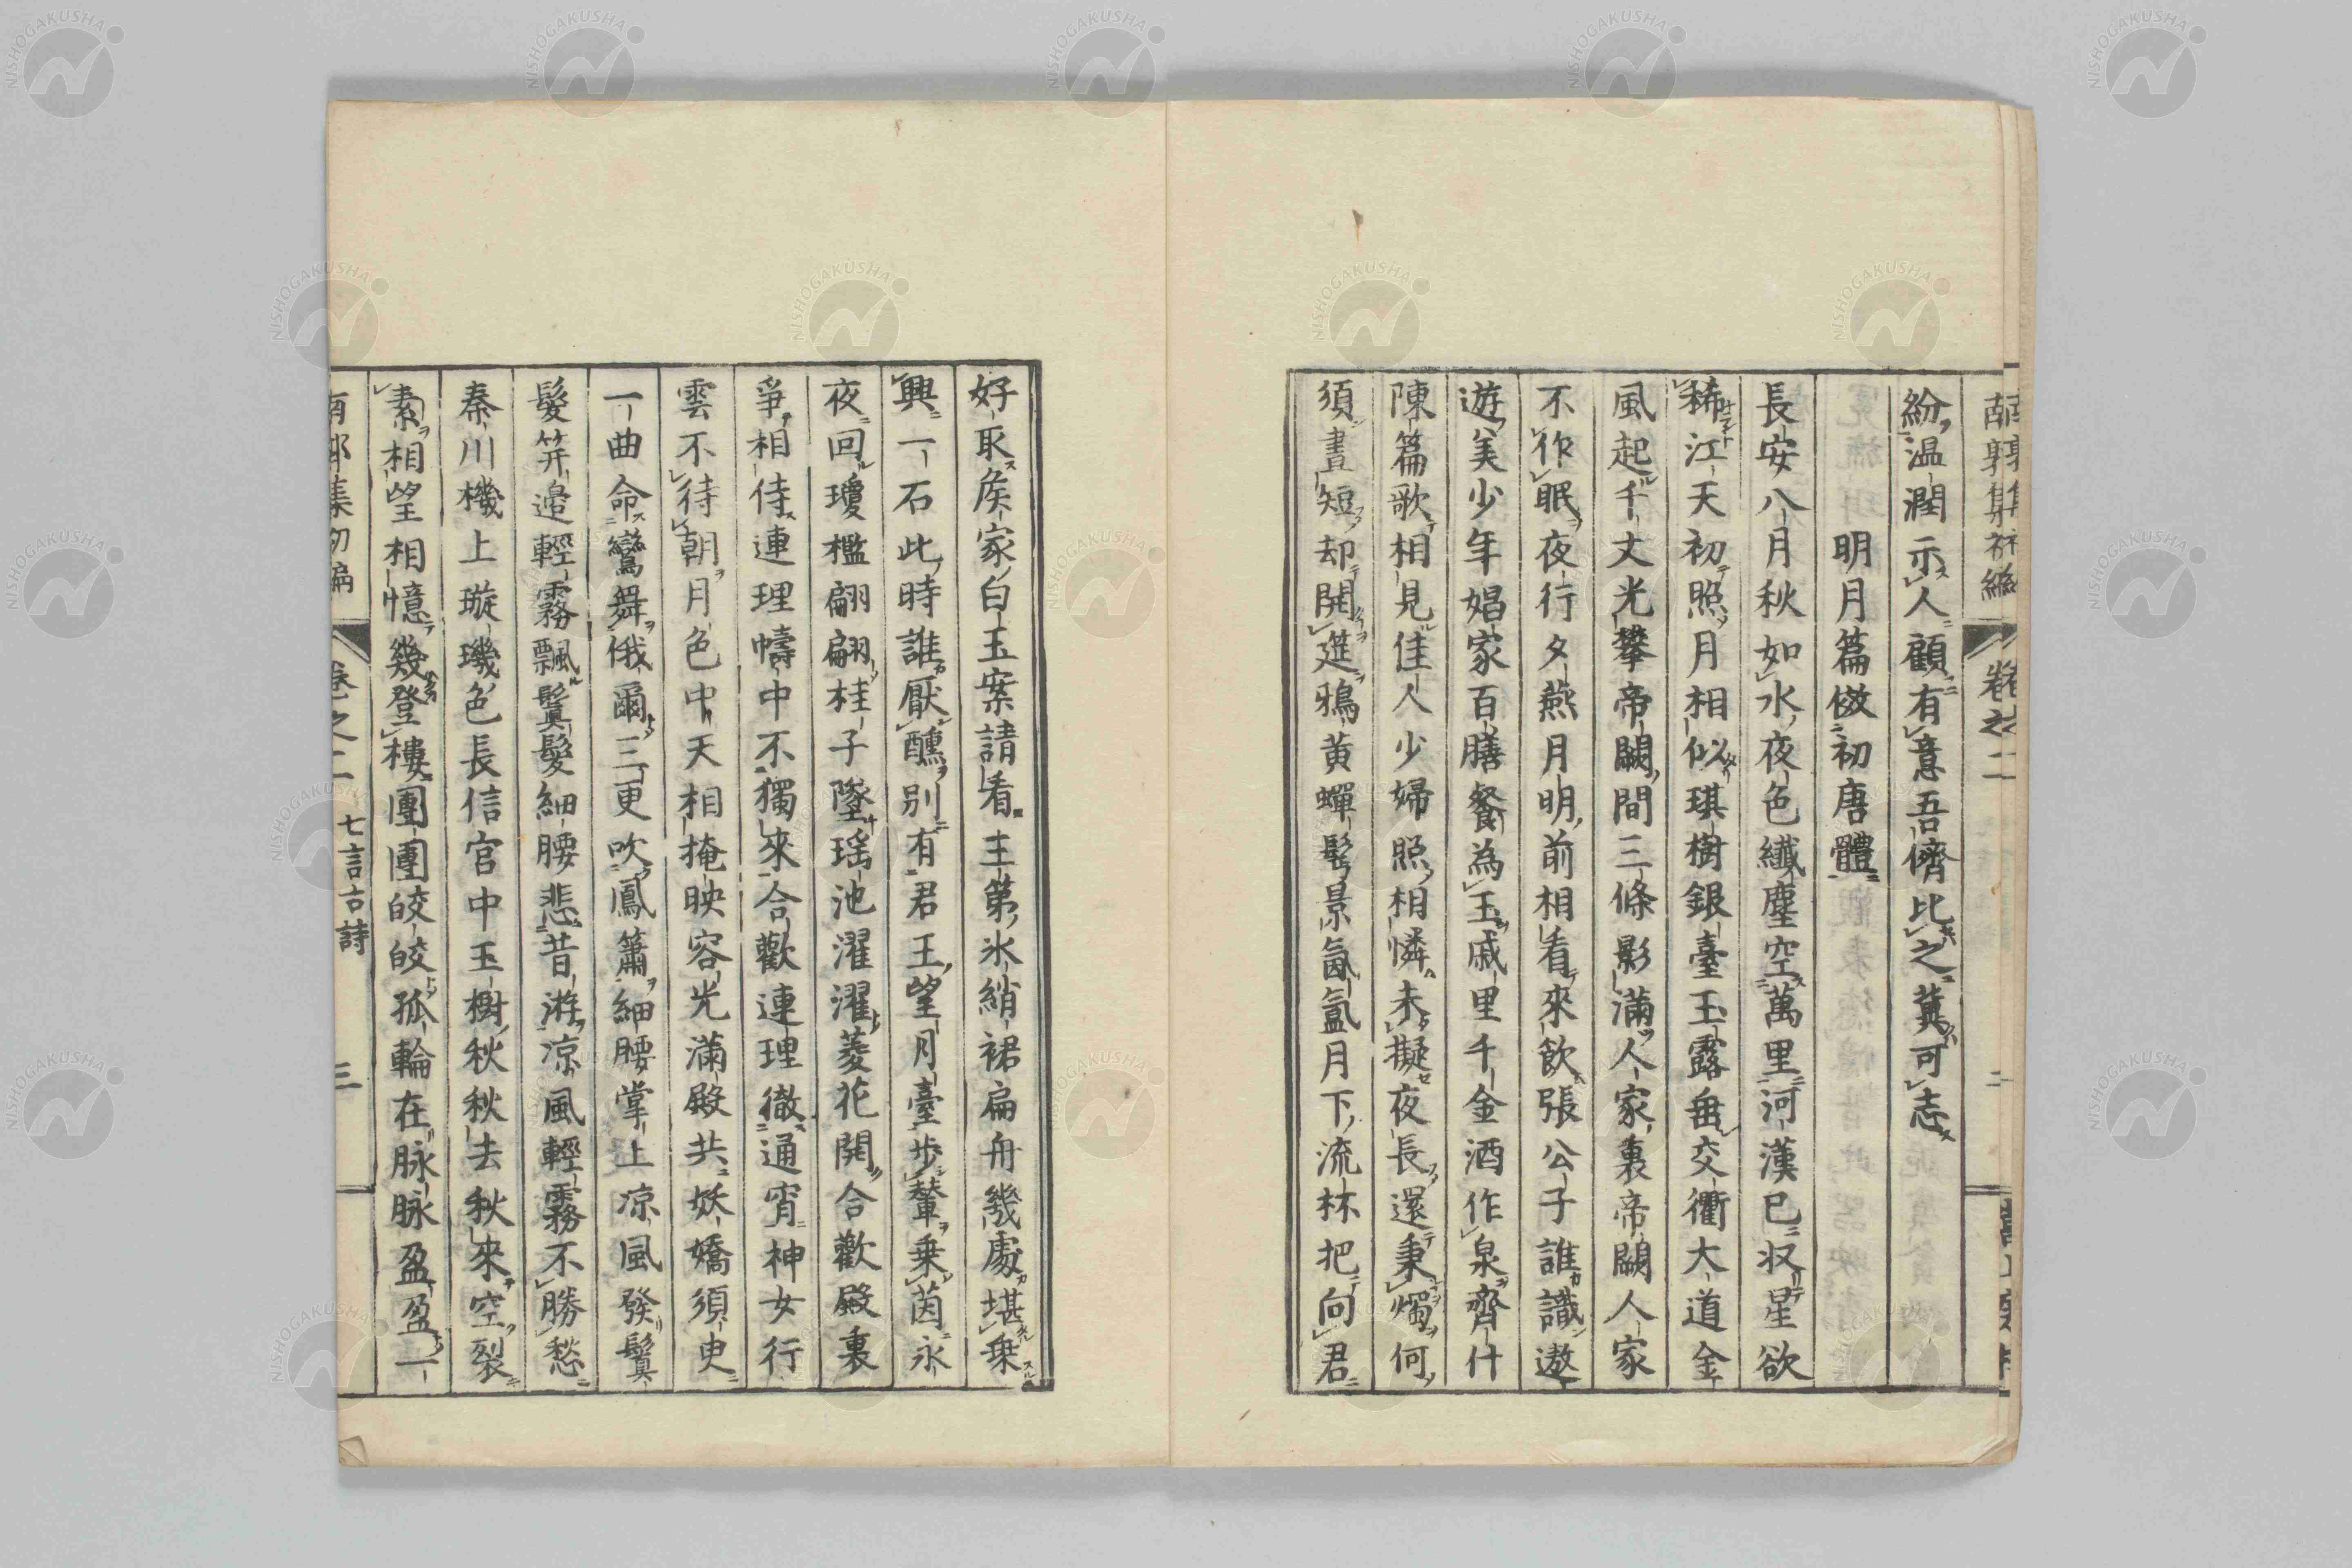 紛温潤示人顧有意吾儕比之冀可志
明月篇倣初唐體
長安八月秋如水夜色纖塵空萬里河漢已収星欲
稀江天初照月相似琪樹銀臺玉露垂交衢大道金
風起千丈光攀帝闕間三條影滿人家裏帝闕人家
不作眠夜行夕燕月明前相看來飲張公子誰識遨
遊美少年娼家百膳餐為玉戚里千金酒作泉齊什
陳篇歌相見佳人少婦照相憐未擬夜長還秉燭何
須晝短却開進鴉黄蟬髩景氤氳月下流杯把向君
好取矦家白玉案請看主第氷綃裙扁舟幾處堪乗
興一石此時誰厭醺別有君王望月臺步輦乗茵永
夜回瓊檻翩翩桂子墜瑶池濯濯菱花開合歡殿裏
爭相侍連理幬中不獨來合歡連理徹通宵神女行
雲不待朝月色中天相掩映容光滿殿共妖嬌須臾
一曲命鸞舞俄爾三更吹鳳簫細腰掌上涼風發鬒
髮笄邉輕霧飄鬒髮細腰悲昔游涼風輕霧不勝愁
秦川機上璇璣色長信宮中玉樹秋秋去秋來空裂
素相望相憶幾登樓團團皎皎孤輪在脉脉盈盈一
南郭集初編
卷之二
七言古詩
三